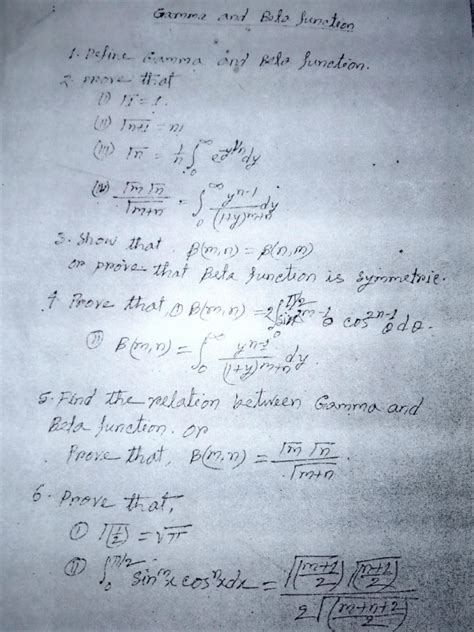 Gamma and Beta function
1. Define Gamma and Beta function.
2. prove that
(i) Γ1 = 1.
(ii) Γn+1 = n!
(iii) Γn = 1/n ∫₀^∞ e^{-y^{1/n}} dy
(iv) Γm Γn / Γm+n = ∫₀^∞ y^{n-1} / (1+y)^{m+n} dy
3. Show that β(m,n) = β(n,m)
or prove that Beta function is symmetric.
4 Prove that, (i) β(m,n) = 2∫₀^{π/2} sin^{2m-1}θ cos^{2n-1}θ dθ.
(ii) β(m,n) = ∫₀^∞ y^{n-1} / (1+y)^{m+n} dy.
5. Find the relation between Gamma and
Beta function. or
Prove that, β(m,n) = Γm Γn / Γm+n.
6. Prove that,
(i) Γ(1/2) = √π
(ii) ∫₀^{π/2} sin^m x cos^n x dx = Γ(m+1/2) Γ(n+1/2) / 2 Γ(m+n+2/2)